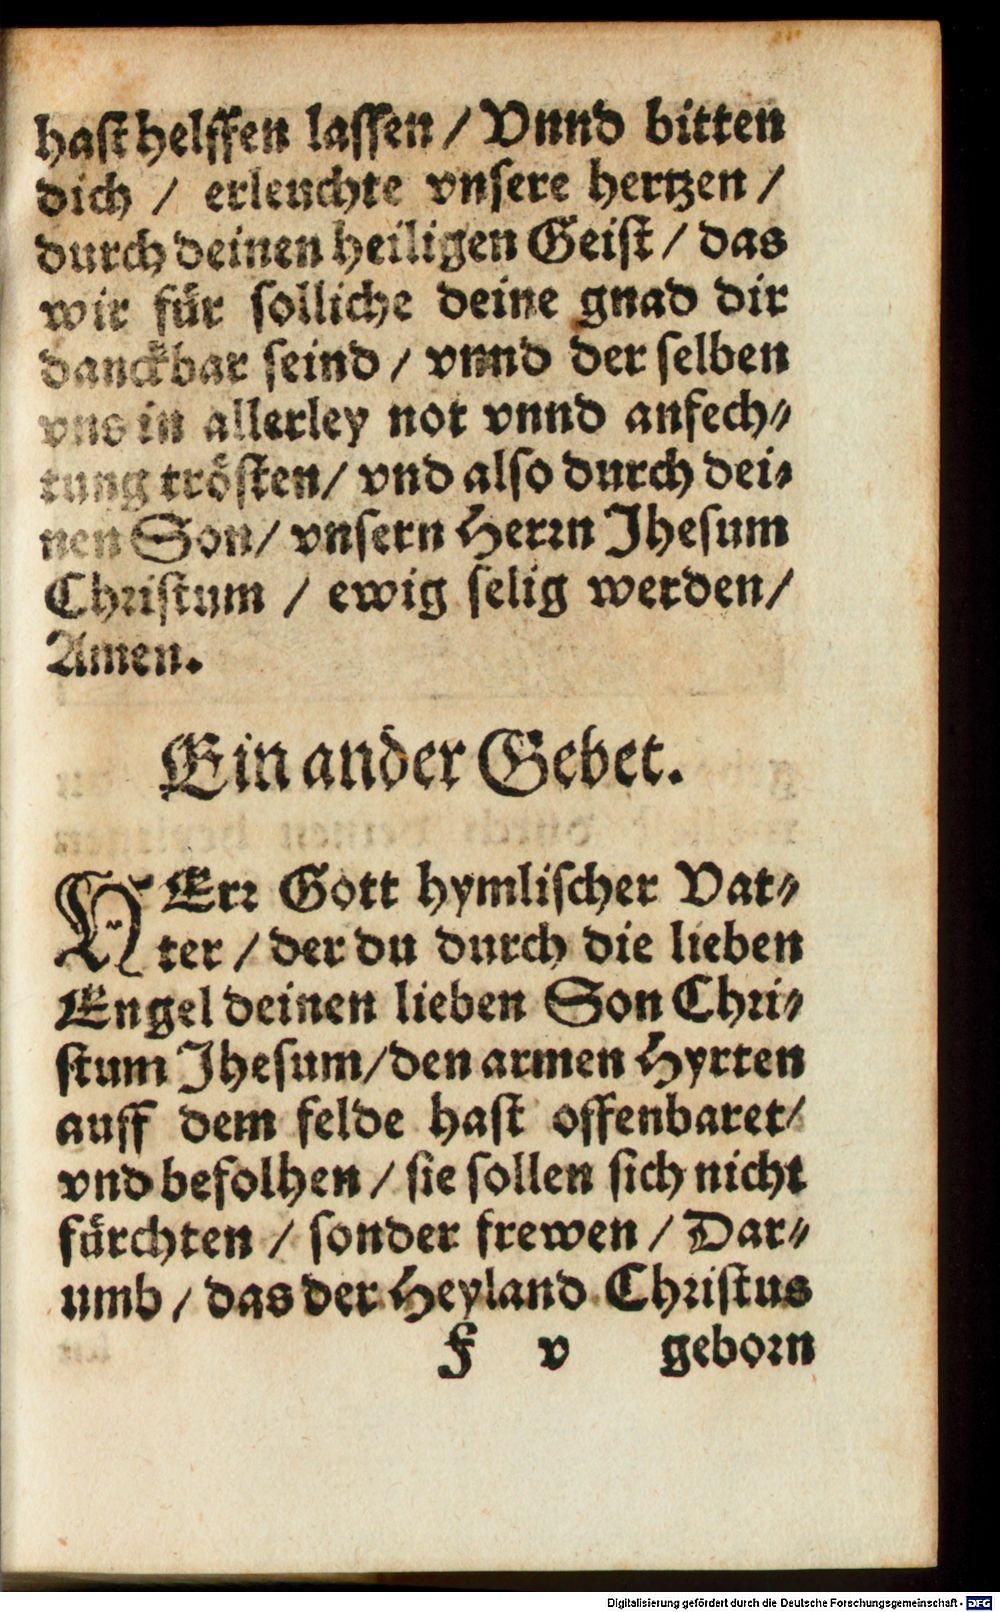 hast helffen lassen / Vnnd bitten
dich / erleuchte vnsere hertzen /
durch deinen heiligen Geist / das
wir für solliche deine gnad dir
danckbar seind / vnnd der selben
vns in allerley not vnnd anfech⸗
tung trösten / vnd also durch dei⸗
nen Son / vnsern Herrn Jhesum
Christum / ewig selig werden /
Amen.
Ein ander Gebet.
HErr Gott hymlischer Vat⸗
ter / der du durch die lieben
Engel deinen lieben Son Chri⸗
stum Jhesum / den armen Hyrten
auff dem felde hast offenbaret /
vnd befolhen / sie sollen sich nicht
fürchten / sonder frewen / Dar⸗
umb / das der Heyland Christus
F v geborn
Digitalisierung gefördert durch die Deutsche Forschungsgemeinschaft - DFG